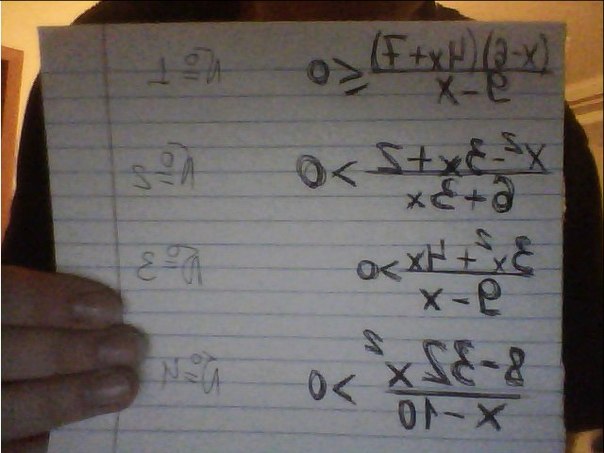 (x-6)(4x+7)/9-x ≤ 0 Nº 1
x²-3x+2/6+3x > 0 Nº 2
3x²+4x/9-x > 0 Nº 3
8-32x²/x-10 > 0 Nº 4